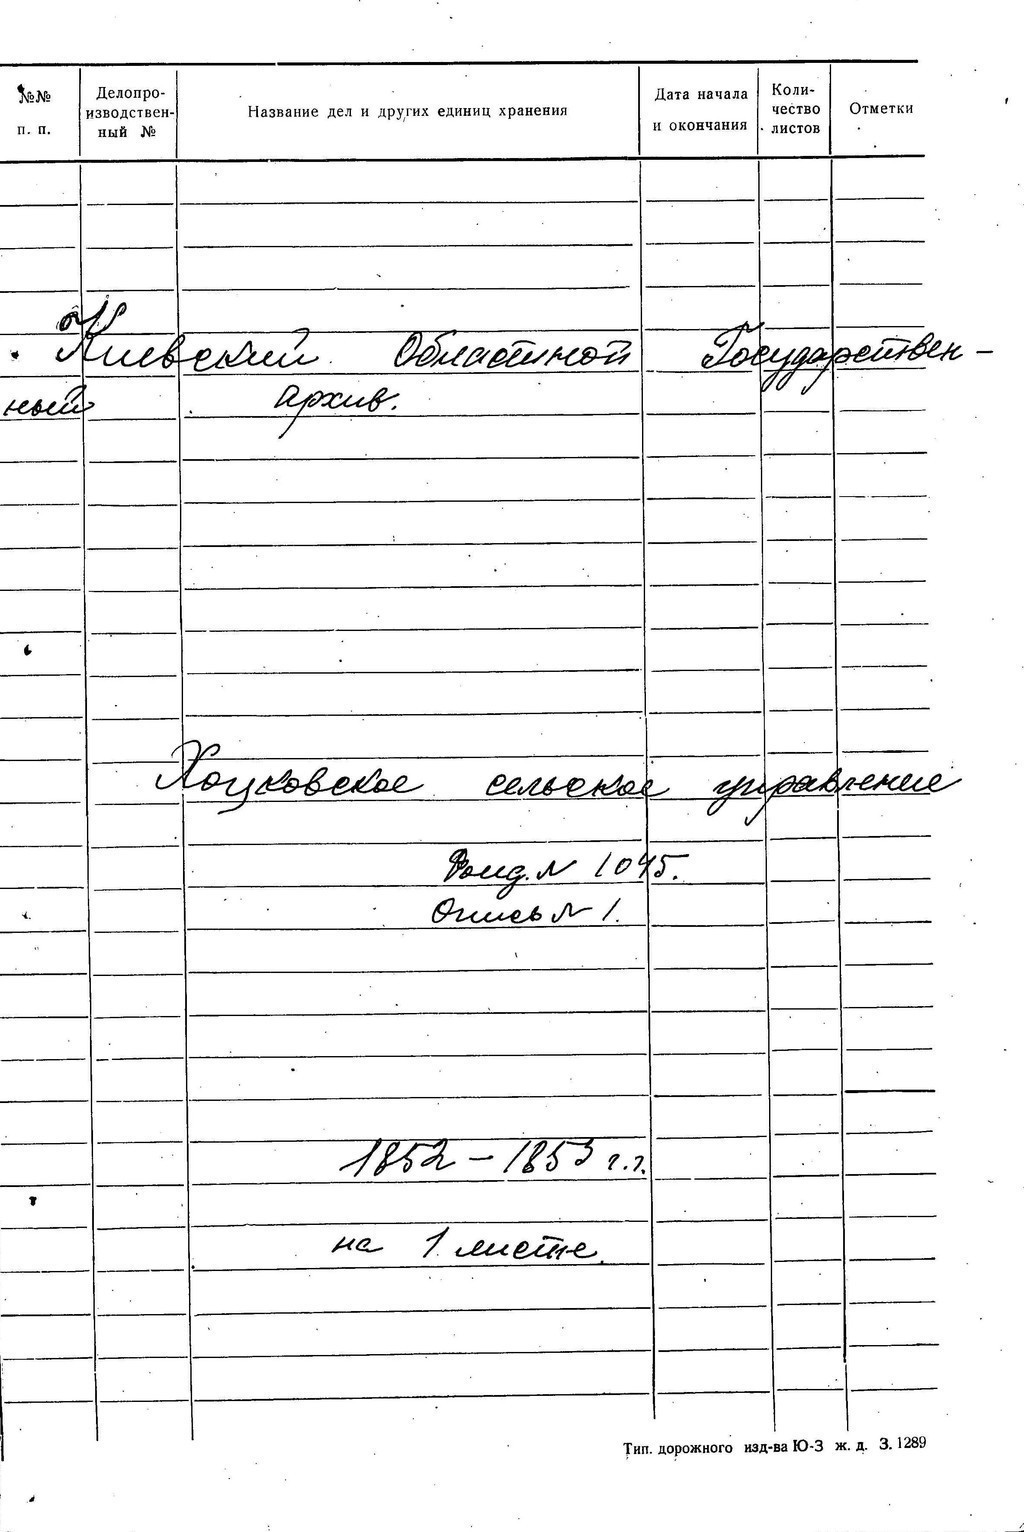 №№ п. п.
Делопро-
изводствен-
ный №
Название дел и других единиц хранения
Дата начала
и окончания
Коли-
чество
листов
Отметки
Киевский Областной Государствен-
ный архив.
Хоцковское сельское управление
Фонд. N 1045.
Опись N 1.
1852 – 1853 г.г.
на 1 листе.
Тип. дорожного изд-ва Ю-З ж. д. З. 1289